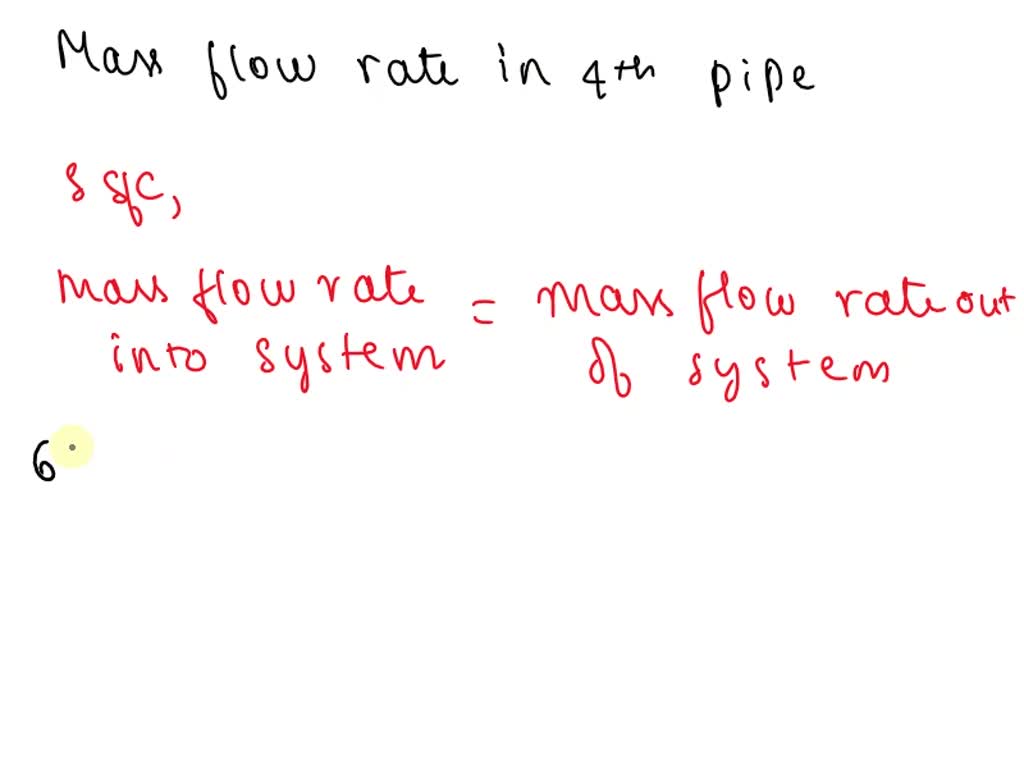 Mass flow rate in 4th pipe
mass flow rate = mass flow rate out
into system of system
6